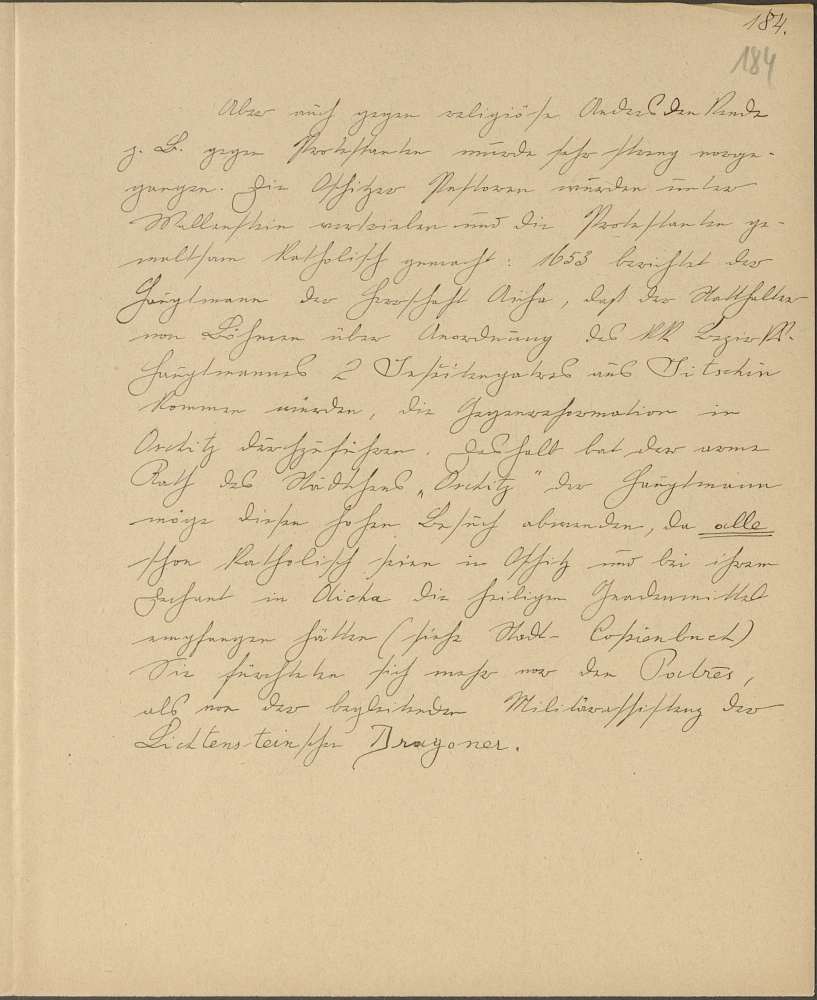 184.
184
Aber auch gegen religiöse Andersdenkende
z. B. gegen Protestanten wurde sehr streng vorge-
gangen. Die Oschitzer Pastoren wurden unter
Wallenstein vertrieben und die Protestanten ge-
waltsam katholisch gemacht: 1653 berichtet der
Hauptmann der Herrschaft Aicha, daß der Statthalter
von Böhmen über Anordnung des kk Bezirks-
hauptmannes 2 Jesuitenpatres aus Jitschin
kommen würden, die Gegenreformation in
Oschitz durchzuführen. Deshalb bat der arme
Rath des Städtchens „Oschitz" der Hauptmann
möge diesen hohen Besuch abwenden, da alle
schon katholisch seien in Oschitz und bei ihrem
Dechant in Aicha die heiligen Gnadenmittel
empfangen hätten (siehe Stadt- Copienbuch)
Sie fürchteten sich mehr vor den Patres,
als vor der begleitenden Militärassistenz der
Lichtenstein'schen Dragoner.